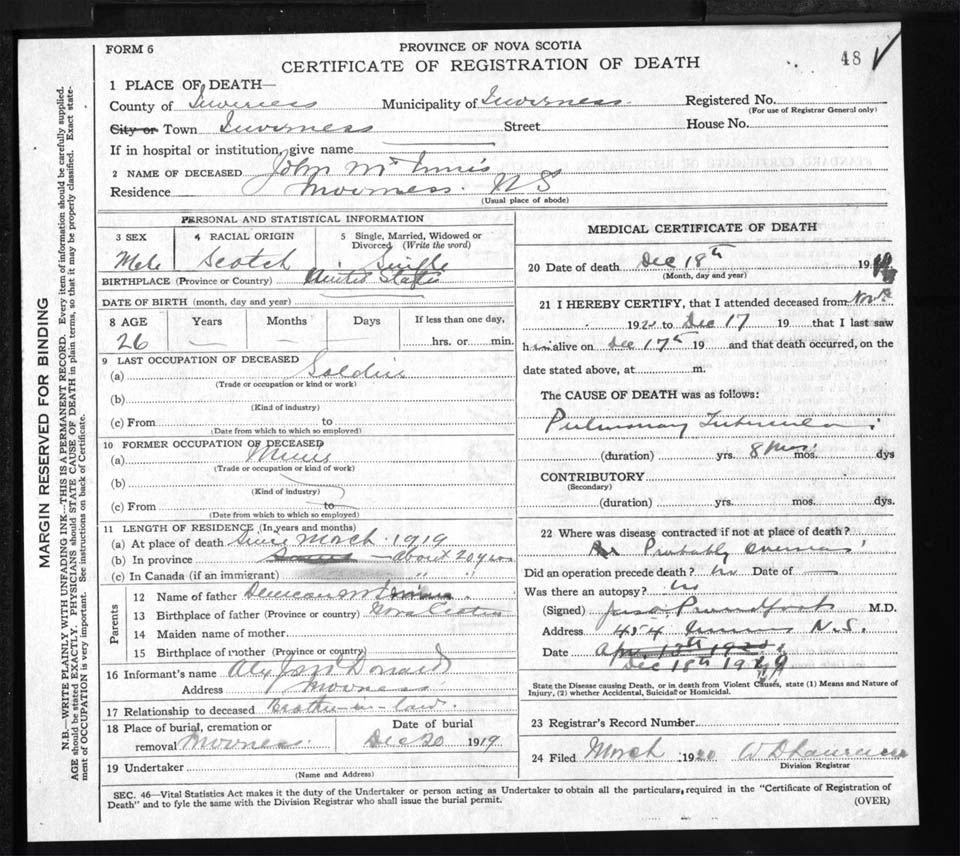 FORM 6
PROVINCE OF NOVA SCOTIA
48 ✓
CERTIFICATE OF REGISTRATION OF DEATH
1 PLACE OF DEATH—
County of Inverness Municipality of Inverness Registered No.
(For use of Registrar General only)
City or Town Inverness Street House No.
If in hospital or institution, give name
2 NAME OF DECEASED John McInnis
Residence Inverness. N S
(Usual place of abode)
PERSONAL AND STATISTICAL INFORMATION
3 SEX Male
4 RACIAL ORIGIN Scotch
5 Single, Married, Widowed or Divorced (Write the word) Single
BIRTHPLACE (Province or Country) United States
DATE OF BIRTH (month, day and year)
8 AGE Years Months Days If less than one day,
26 — — hrs. or min.
9 LAST OCCUPATION OF DECEASED
(a) Soldier
(Trade or occupation or kind or work)
(b)
(Kind of industry)
(c) From to
(Date from which to which so employed)
10 FORMER OCCUPATION OF DECEASED
(a) Miner
(Trade or occupation or kind of work)
(b)
(Kind of industry)
(c) From to
(Date from which to which so employed)
11 LENGTH OF RESIDENCE (In years and months)
(a) At place of death Since March 1919
(b) In province — about 20 years
(c) In Canada (if an immigrant) " "
Parents
12 Name of father Duncan McInnis
13 Birthplace of father (Province or country) Nova Scotia
14 Maiden name of mother
15 Birthplace of mother (Province or country)
16 Informant's name Alex Jos McDonald
Address Inverness
17 Relationship to deceased Brother-in-law.
18 Place of burial, cremation or removal Inverness. Date of burial Dec 20 1919
19 Undertaker
(Name and Address)
MEDICAL CERTIFICATE OF DEATH
20 Date of death Dec 18th 19
(Month, day and year)
21 I HEREBY CERTIFY, that I attended deceased from Nov
192 to Dec 17 19 that I last saw
him alive on Dec 17th 19 and that death occurred, on the
date stated above, at m.
The CAUSE OF DEATH was as follows:
Pulmonary Tuberculosis
(duration) yrs. 8 mos. mos. dys
CONTRIBUTORY
(Secondary)
(duration) yrs. mos. dys.
22 Where was disease contracted if not at place of death?
Probably overseas
Did an operation precede death? no Date of —
Was there an autopsy? no
(Signed) Proudfoot M.D.
Address Inverness N.S.
Date
Dec 18th 1919
State the Disease causing Death, or in death from Violent Causes, state (1) Means and Nature of Injury, (2) whether Accidental, Suicidal or Homicidal.
23 Registrar's Record Number
24 Filed March 1920
Division Registrar
SEC. 46—Vital Statistics Act makes it the duty of the Undertaker or person acting as Undertaker to obtain all the particulars required in the "Certificate of Registration of
Death" and to fyle the same with the Division Registrar who shall issue the burial permit.
(OVER)
MARGIN RESERVED FOR BINDING
N.B.—WRITE PLAINLY WITH UNFADING INK—THIS IS A PERMANENT RECORD. Every item of information should be carefully supplied.
AGE should be stated EXACTLY. PHYSICIANS should STATE CAUSE OF DEATH in plain terms, so that it may be properly classified. Exact statement of OCCUPATION is very important. See instructions on back of Certificate.